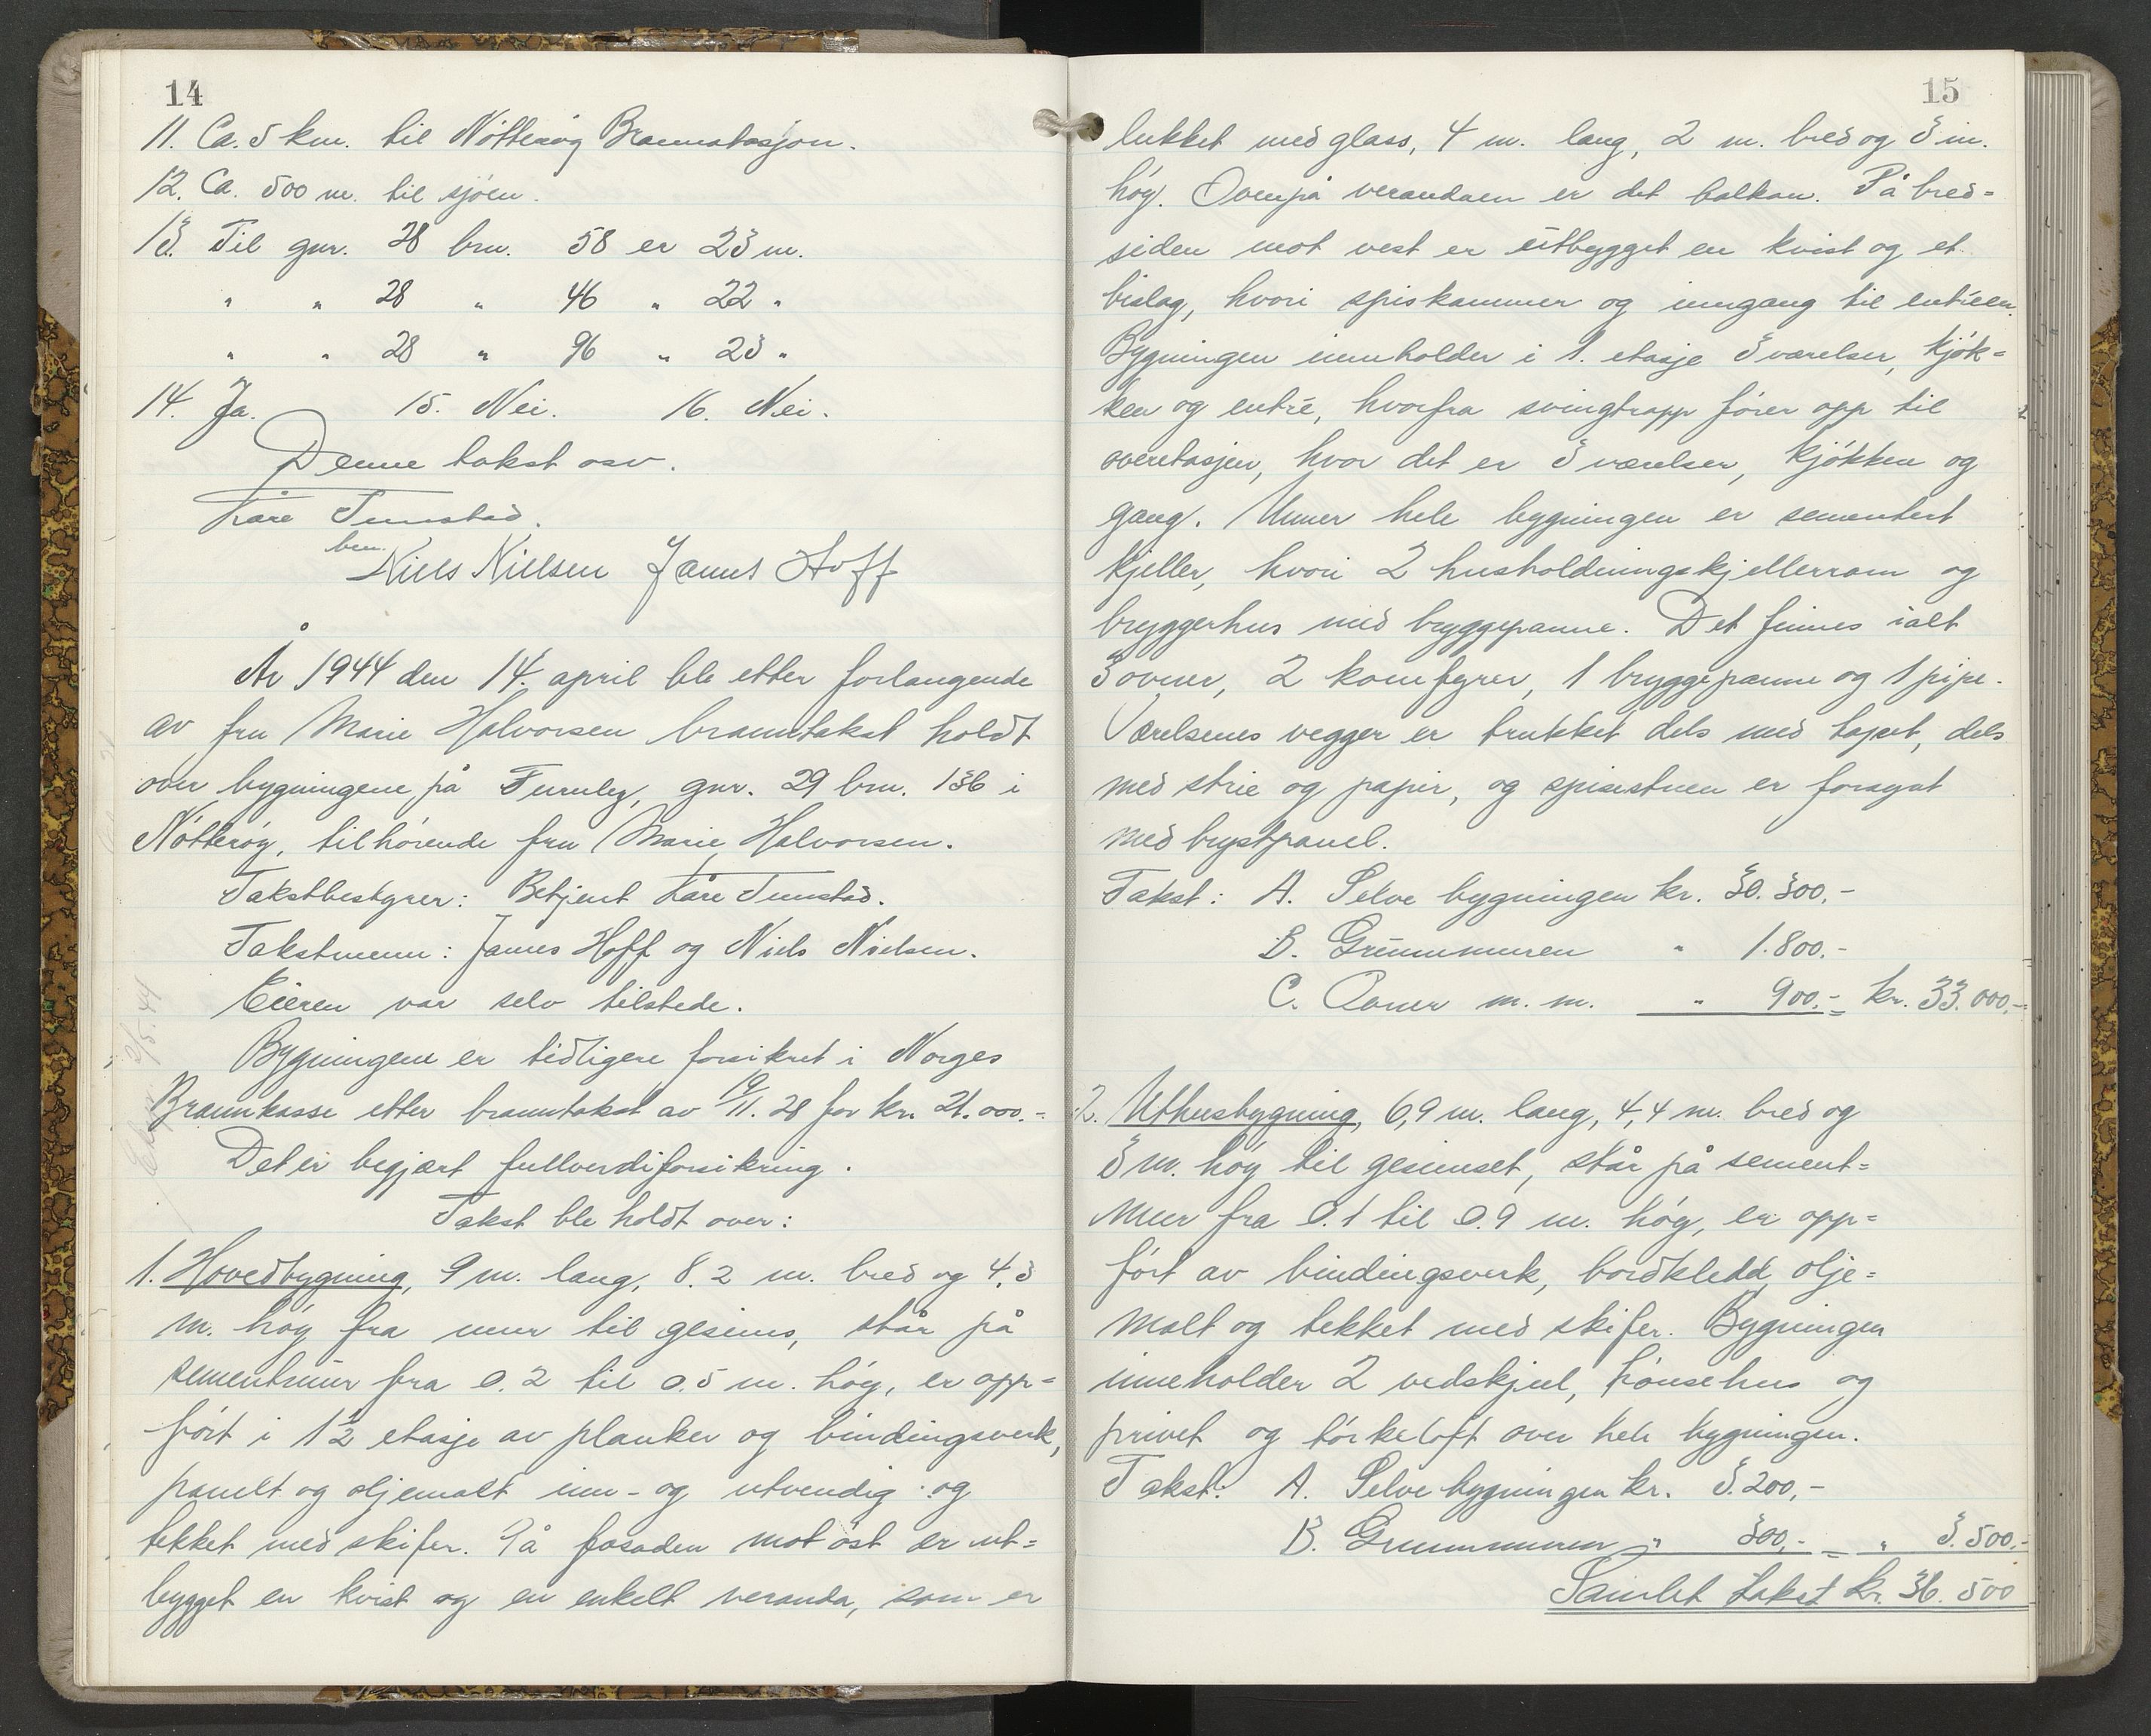 14
11. Ca. 5 km. til Nötteröy Brannstasjon.
12. Ca. 500 m. til sjöen.
13. Til gnr. 28 bnr. 58 er 23 m.
" " 28 " 46 " 22 "
" " 28 " 96 " 23 "
14. Ja. 15. Nei. 16. Nei.
Denne takst osv.
Kåre Tunstad.
bm.
Niels Nielsen James Hoff
År 1944 den 14. april ble etter forlangende
av fru Marie Halvorsen branntakst holdt
over bygningene på Furuly, gnr. 29 bnr. 136 i
Nötteröy, tilhörende fru Marie Halvorsen.
Takstbestyrer: Betjent Kåre Tunstad.
Takstmenn: James Hoff og Niels Nielsen.
Eieren var selv tilstede.
Bygningene er tidligere forsikret i Norges
Brannkasse etter branntakst av 19/11. 28 for kr. 21.000.-
Det er begjært fullverdiforsikring.
Takst ble holdt over:
1. Hovedbygning, 9 m. lang, 8.2 m. bred og 4.3
m. höy fra mur til gesims, står på
sementmur fra 0.2 til 0.5 m. höy, er opp=
fört i 1½ etasje av planker og bindingsverk,
panelt og oljemalt inn- og utvendig og
tekket med skifer. På fasaden mot öst er ut=
bygget en kvist og en enkelt veranda, som er
2/5.44
15
lukket med glass, 4 m. lang, 2 m. bred og 3 m.
höy. Ovenpå verandaen er det balkon. På bred=
siden mot vest er utbygget en kvist og et
bislag, hvori spiskammer og inngang til entréen.
Bygningen innholder i 1. etasje 3 værelser, kjök=
ken og entré, hvorfra svingtrapp förer opp til
overetasjen, hvor det er 3 værelser, kjökken og
gang. Unner hele bygningen er sementert
kjeller, hvori 2 husholdningskjellerrom og
bryggerhus med bryggepanne. Det finnes ialt
3 ovner, 2 komfyrer, 1 bryggepanne og 1 pipe.
Værelsenes vegger er trukket dels med tapet, dels
med strie og papir, og spisestuen er forsynt
med brystpanel.
Takst: A. Selve bygningen kr. 30.300,-
B. Grunnmuren " 1.800.-
C. Ovner m. m. " 900.- = kr. 33.000,-
2. Uthusbygning, 6,9 m. lang, 4,4 m. bred og
3 m. höy til gesimset, står på sement=
mur fra 0.1 til 0.9 m. höy, er opp=
fört av bindingsverk, bordkledd, olje=
malt og tekket med skifer. Bygningen
inneholder 2 vedskjul, hönsehus og
privet og törkeloft over hele bygningen.
Takst: A. Selve bygningen kr. 3.200,-
B. Grunnmuren " 300,- = " 3.500.-
Samlet takst kr. 36.500